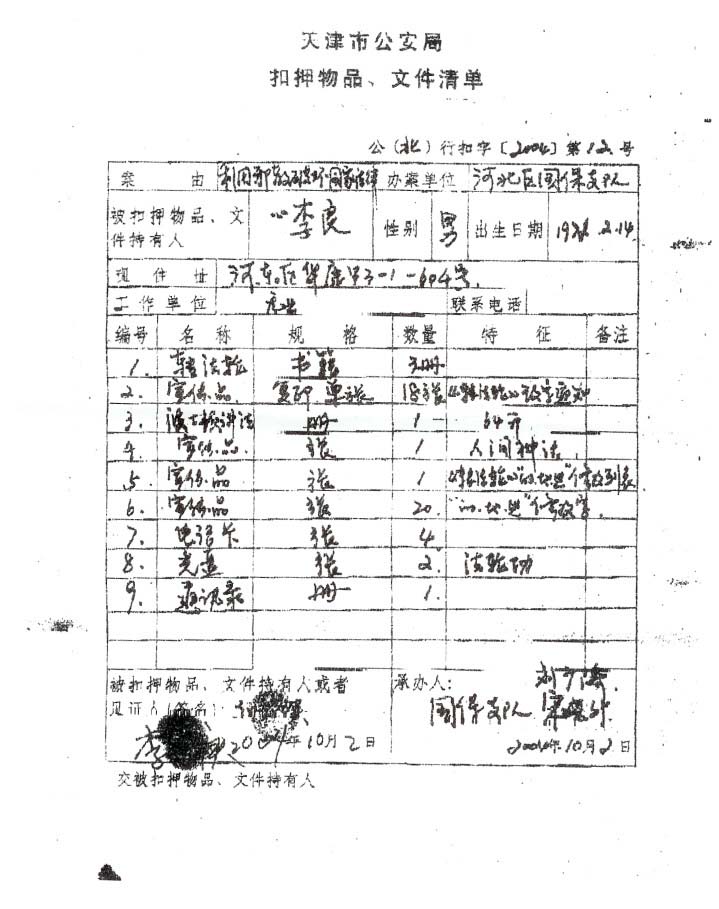 天津市公安局
扣押物品、文件清单
公(北)行扣字〔2004〕第12号
案 由 利用邪教破坏国家法律 办案单位 河北区国保支队
被扣押物品、文件持有人 李良 性别 男 出生日期 2.14
现 住 址 河东区华康里3-1-604号
工作单位 联系电话
编号 名 称 规 格 数量 特 征 备注
1. 转法轮 书籍 册
2. 宣传品 复印 单张 18张 《转法轮》改字通知
3. 讲法 册 1 64开
4. 宣传品 张 1 人间神法
5. 宣传品 张 1 《转法轮》"的、地、进"修改列表
6. 宣传品 张 20. "的、地、进"修改字
7. 电话卡 张 4
8. 光盘 张 2. 法轮功
9. 通讯录 册 1.
被扣押物品、文件持有人或者 承办人:
见证人(签名): 国保支队
李 2004年10月2日 2004年10月2日
交被扣押物品、文件持有人